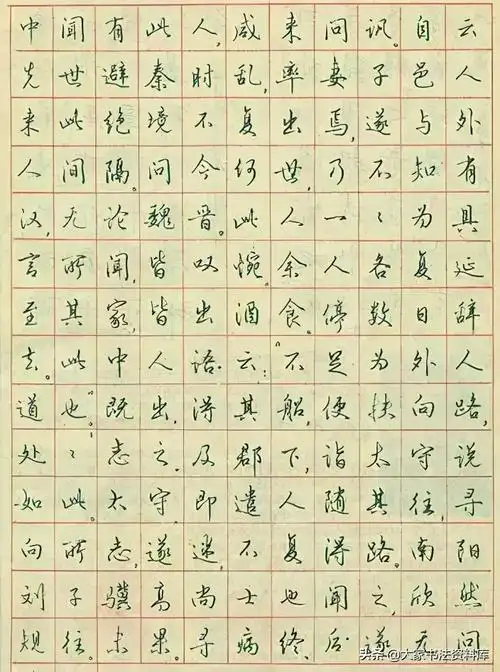 中闻有此人,咸来问讯。自云
先世避秦时乱,率妻子邑人
来此绝境不复出焉,遂与外
人间隔。问今何世,乃不知有
汉,无论魏晋。此人一〻为具
言所闻,皆叹惋。余人各复延
至其家,皆出酒食。停数日辞
去。此中人语云:“不足为外人
道也。”既出,得其船,便扶向路,
处〻志之。及郡下,诣太守说
如此。太守即遣人随其往,寻
向所志,遂迷,不复得路。南阳
刘子骥高尚士也闻之,欣然
规往。未果。寻病终,后遂无问
头条@大家书法资料库